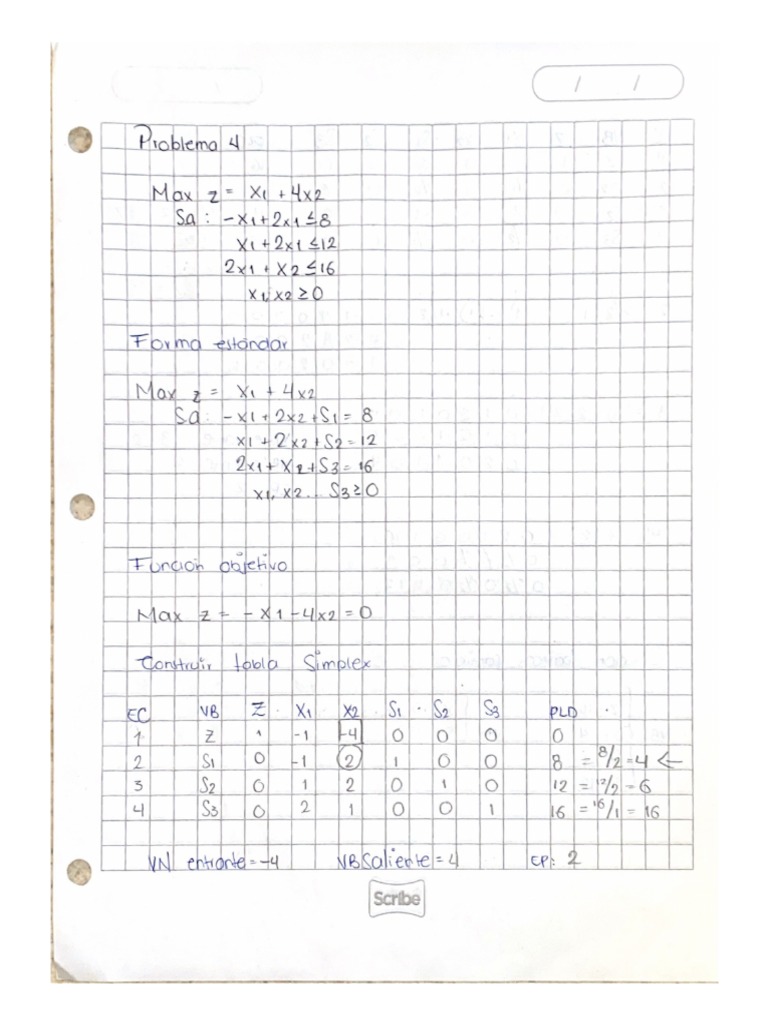 / /
Problema 4
Max z = x1 + 4x2
Sa: -x1+2x1≤8
x1+2x1≤12
2x1+x2≤16
x1,x2≥0
Forma estándar
Max z = x1 + 4x2
Sa: -x1+2x2+S1= 8
x1+2x2+S2=12
2x1+x2+S3=16
x1, x2... S3≥0
Función objetivo
Max z = -x1-4x2=0
Construir tabla Simplex
EC VB Z x1 x2 S1 S2 S3 PLD
1 z 1 -1 -4 0 0 0 0
2 S1 0 -1 2 1 0 0 8 = 8/2=4 ←
3 S2 0 1 2 0 1 0 12 = 12/2=6
4 S3 0 2 1 0 0 1 16 = 16/1=16
VN entrante=-4 VB Saliente=4 CP: 2
Scribe